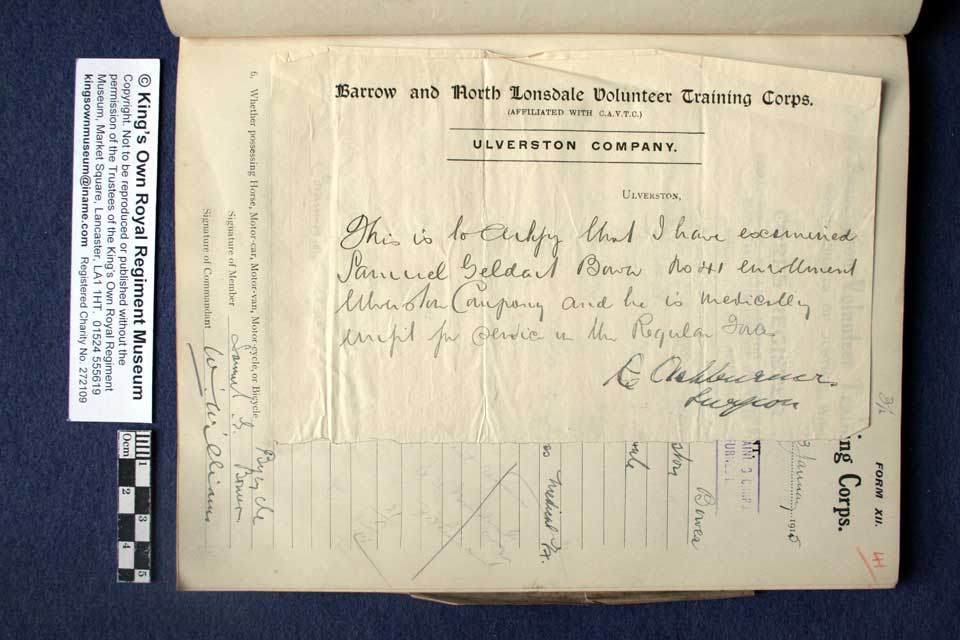 Barrow and North Lonsdale Volunteer Training Corps.
(AFFILIATED WITH C.A.V.T.C.)
ULVERSTON COMPANY.
ULVERSTON,
This is to certify that I have examined
Samuel Geldart Bower No 41 enrollment
Ulverston Company and he is medically
unfit for service in the Regular Forces
R Ashburner.
Surgeon
6. Whether possessing Horse, Motor-car, Motor-van, Motor-cycle, or Bicycle Bycycle
Signature of Member Samuel G. Bower
Signature of Commandant W. Williams
FORM XII.
ing Corps.
41
January 1915
Bower
Medical
© King's Own Royal Regiment Museum
Copyright. Not to be reproduced or published without the
permission of the Trustees of the King's Own Royal Regiment
Museum, Market Square, Lancaster, LA1 1HT. 01524 555619
kingsownmuseum@iname.com Registered Charity No 272109
0cm 1 2 3 4 5